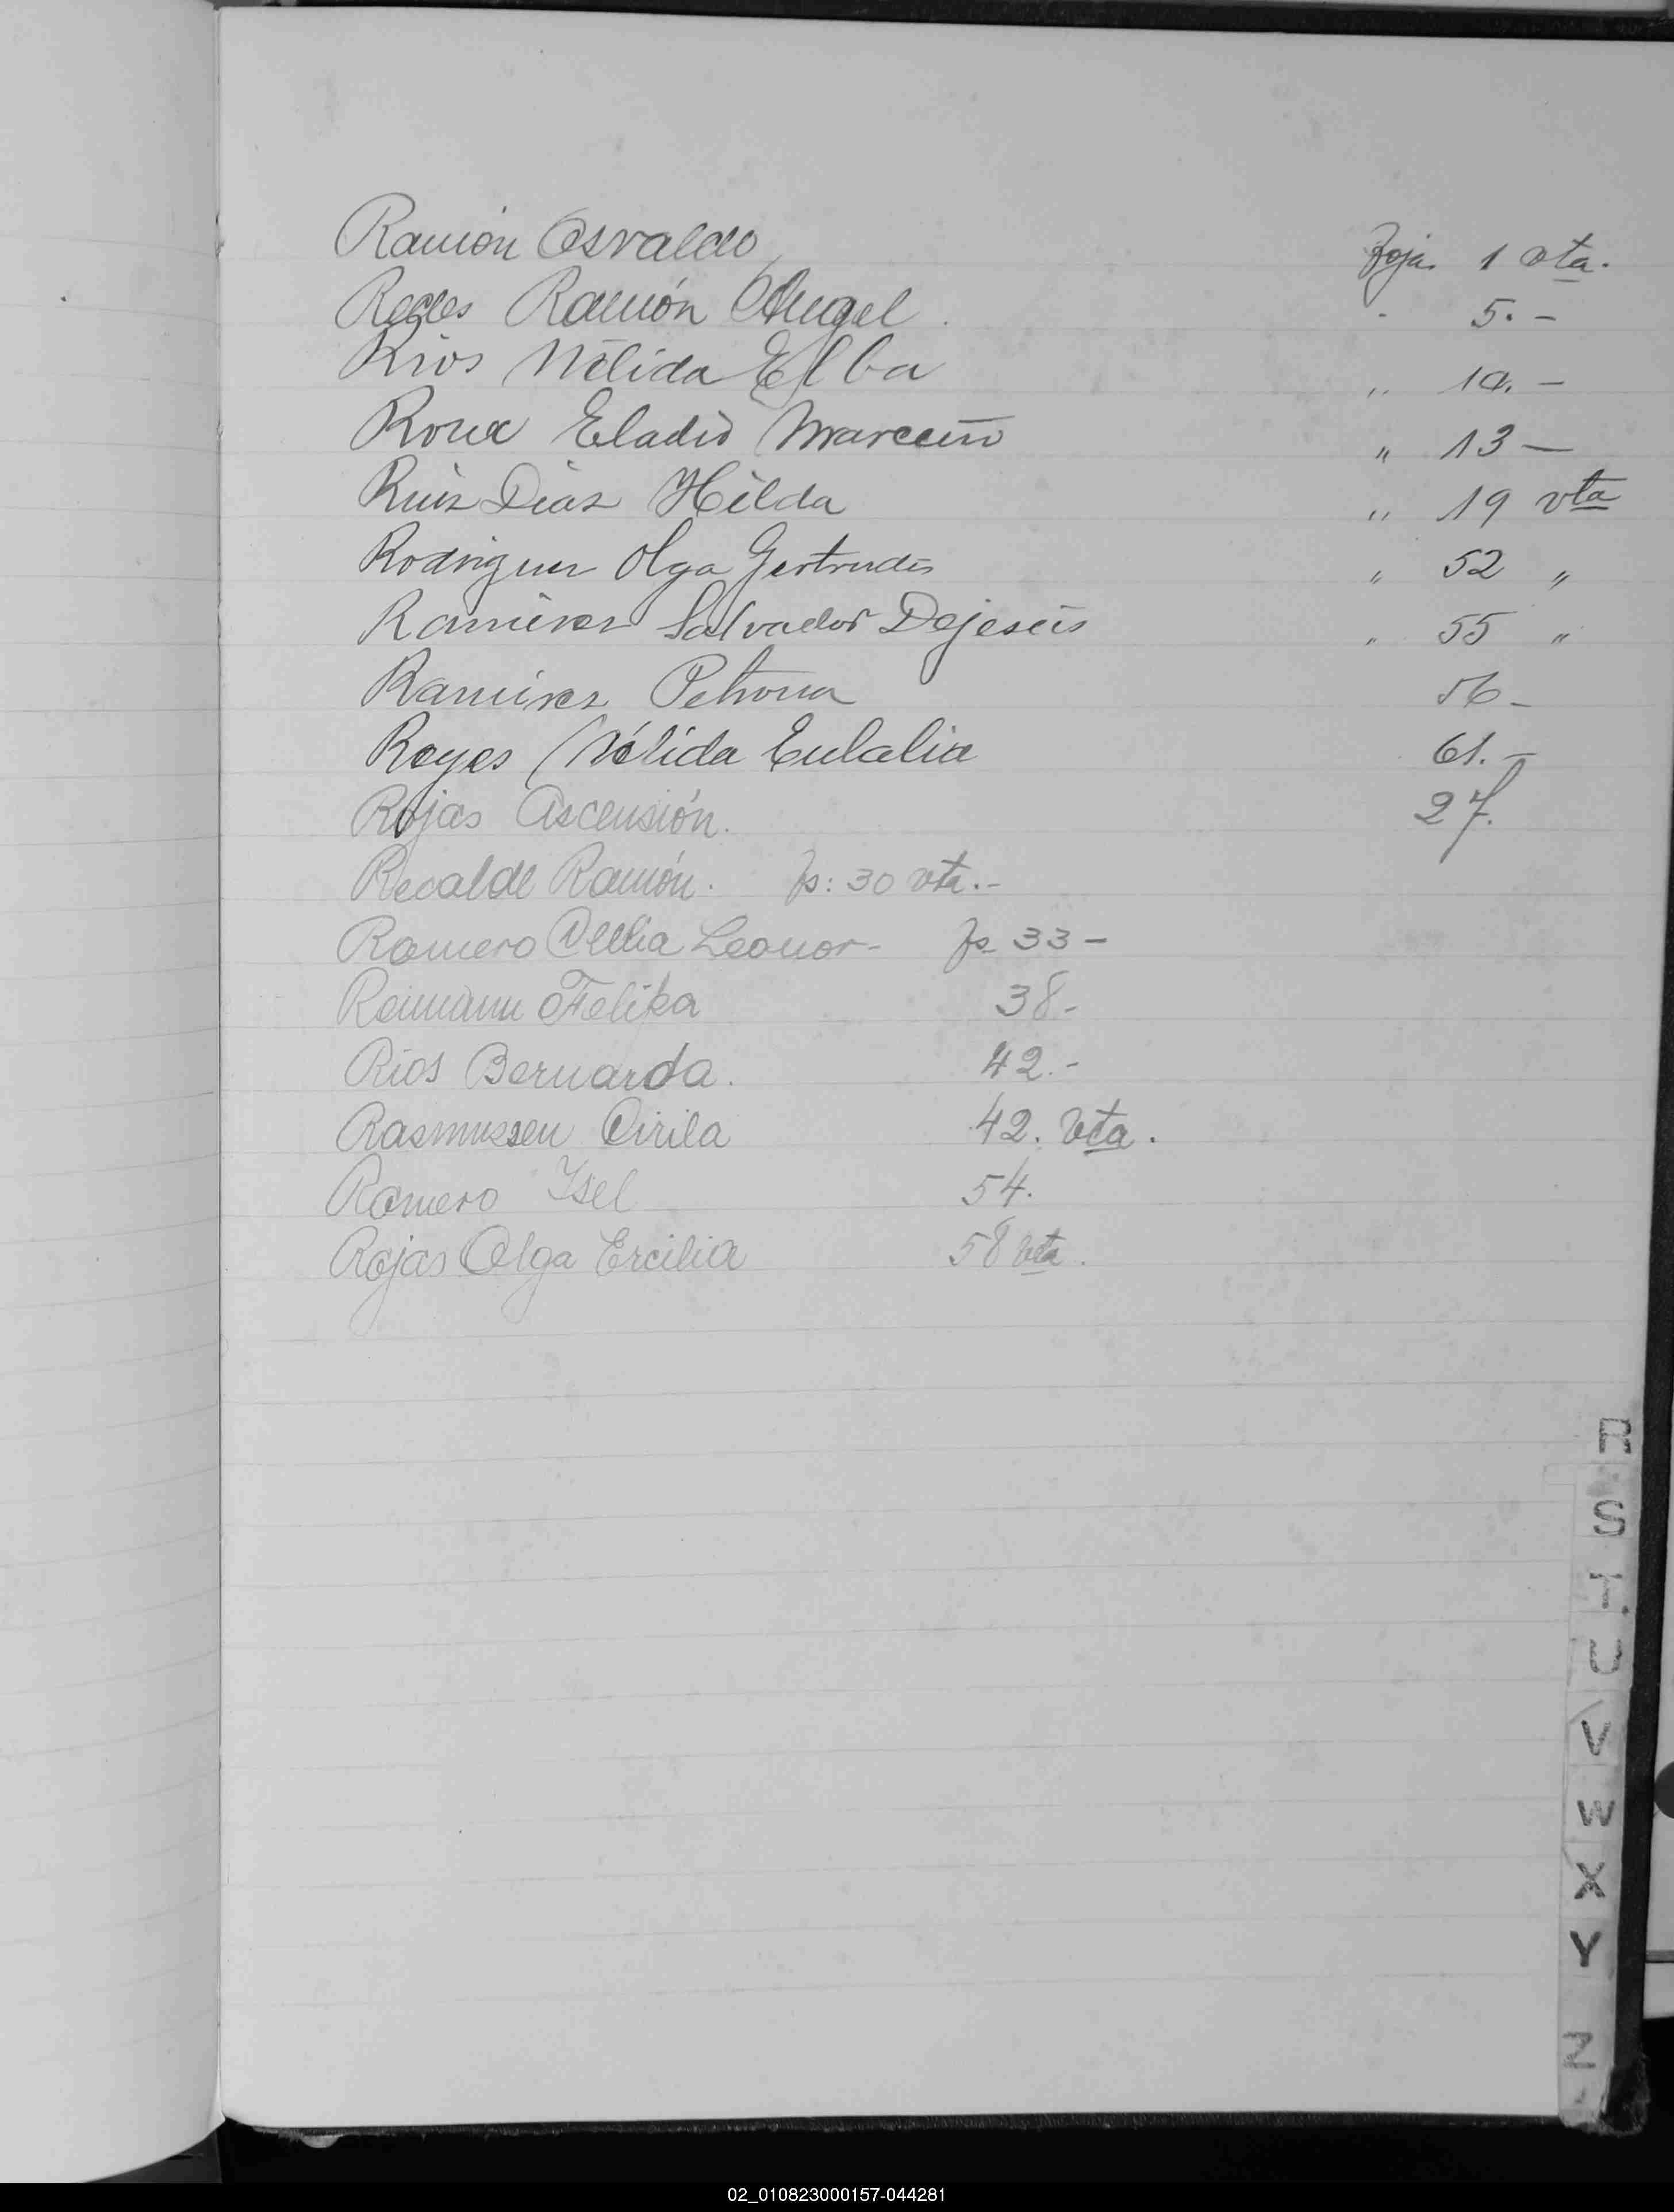 Ramón Osvaldo Foja. 1 vta.
Ramón Angel . " 5.-
Rios Nélida Elba " 10.-
Roux Eladio Marcelino " 13 -
Ruiz Diaz Hilda " 19 vta
Rodriguez Olga Gertrudis " 52 "
Ramírez Salvador Dejesús " 55 "
Ramirez Petrona 56 -
Reyes Nélida Eulalia 61.-
Rojas Ascensión. 27.
Recalde Ramón. fs: 30 vta.-
Romero Leonor- fs 33 -
Reimann 38-
Rios Bernarda. 42.-
Rasmussen Cirila 42. vta.
Romero Isel 54.
Rojas Olga Ercilia 58 vta.
R
S
T
U
V
W
X
Y
Z
02_010823000157-044281